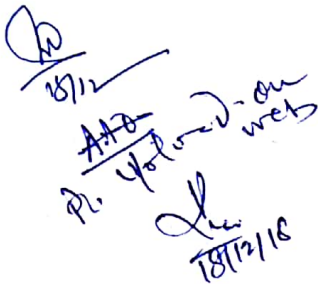 18/12
AAO
Pl. upload on
web
18/12/18